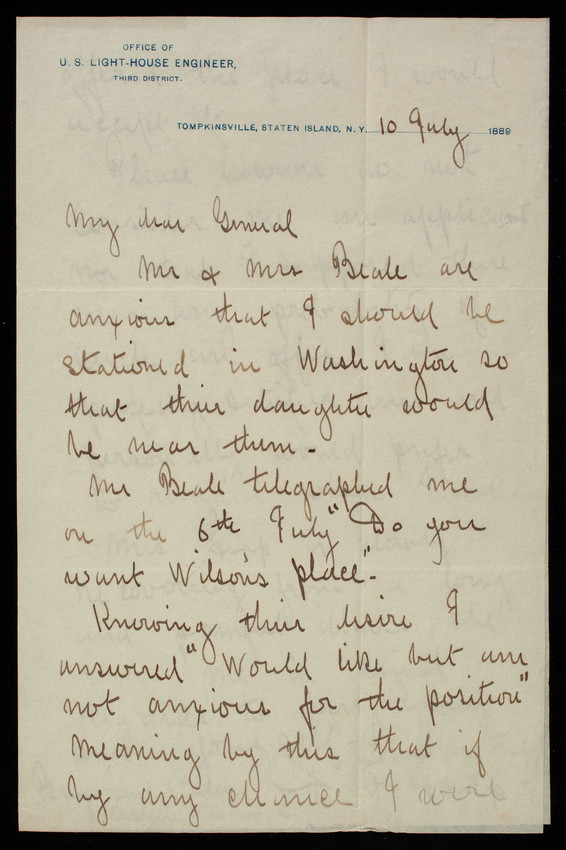 OFFICE OF
U. S. LIGHT-HOUSE ENGINEER,
THIRD DISTRICT.
TOMPKINSVILLE, STATEN ISLAND, N. Y. 10 July 1889
My dear General
Mr & Mrs Beale are
anxious that I should be
stationed in Washington so
that their daughter would
be near them -
Mr Beale telegraphed me
on the 6th July "Do you
want Wilson's place"-
Knowing their desire I
answered "Would like but am
not anxious for the position"
meaning by this that if
by any chance I were